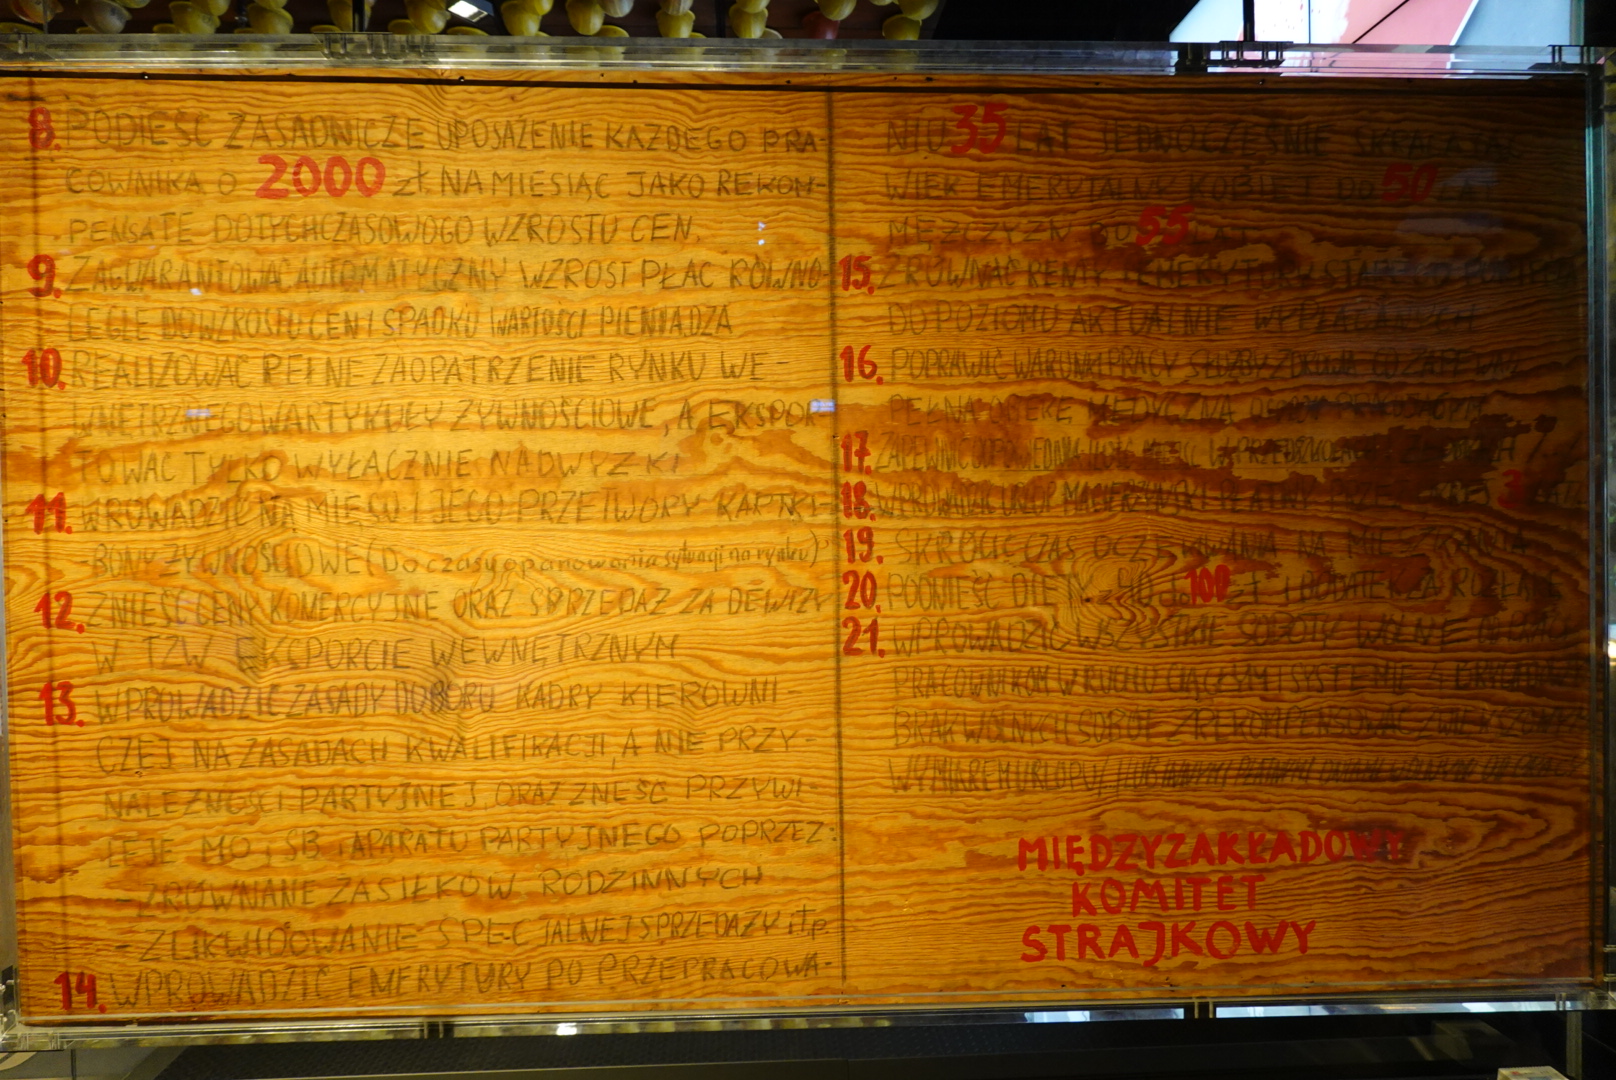 8. PODIEŚĆ ZASADNICZE UPOSAŻENIE KAŻDEGO PRA-
COWNIKA O 2000 zł. NA MIESIĄC JAKO REKOM-
PENSATE DOTYCHCZASOWOGO WZROSTU CEN.
9. ZAGWARANTOWAĆ AUTOMATYCZNY WZROST PŁAC RÓWNO-
LEGLE DO WZROSTU CEN I SPADKU WARTOŚCI PIENIĄDZA
10. REALIZOWAĆ PEŁNE ZAOPATRZENIE RYNKU WE-
WNĘTRZNEGO W ARTYKUŁY ŻYWNOŚCIOWE, A EKSPOR-
TOWAĆ TYLKO WYŁĄCZNIE NADWYŻKI
11. WROWADZIĆ NA MIĘSO I JEGO PRZETWORY KARTKI-
-BONY ŻYWNOŚCIOWE (Do czasu opanowania sytuacji na rynku)
12. ZNIEŚĆ CENY KOMERCYJNE ORAZ SPRZEDAŻ ZA DEWIZY
W TZW. EKSPORCIE WEWNĘTRZNYM
13. WPROWADZIĆ ZASADY DOBORU KADRY KIEROWNI-
CZEJ NA ZASADACH KWALIFIKACJI, A NIE PRZY-
NALEŻNOŚCI PARTYJNEJ, ORAZ ZNEŚĆ PRZYWI-
LEJE MO, SB i APARATU PARTYJNEGO POPRZEZ:
- ZRÓWNANE ZASIŁKÓW RODZINNYCH
- ZLIKWIDOWANIE SPECJALNEJ SPRZEDAŻY itp.
14. WPROWADZIĆ EMERYTURY PO PRZEPRACOWA-
NIU 35 LAT JEDNOCZEŚNIE SKRACAJĄC
WIEK EMERYTALNY KOBIET DO 50 LAT
MĘŻCZYZN DO 55 LAT
15. ZRÓWNAĆ RENTY I EMERYTURY STAREGO PORTFELA
DO POZIOMU AKTUALNIE WYPŁACANYCH
16. POPRAWIĆ WARUNKI PRACY SŁUŻBY ZDROWIA CO ZAPEWNI
PEŁNĄ OPIEKĘ MEDYCZNĄ OSOBOM PRACUJĄCYM
17. ZAPEWNIĆ ODPOWIEDNIĄ ILOŚĆ MIEJSC W PRZEDSZKOLACH
18. WPROWADZIĆ URLOP MACIERZYŃSKI PŁATNY PRZEZ OKRES 3 LAT
19. SKRÓCIĆ CZAS OCZEKIWANIA NA MIESZKANIA
20. PODNIEŚĆ DIETY 40 do 100 zł I DODATEK ZA ROZŁĄKĘ
21. WPROWADZIĆ WSZYSTKIE SOBOTY WOLNE
PRACOWNIKOM W RUCHU CIĄGŁYM I SYSTEMU 4 BRYGADOWYM
BRAK WOLNYCH SOBÓT ZREKOMPENSOWAĆ ZWIĘKSZONYM
WYMIAREM URLOPU
MIĘDZYZAKŁADOWY
KOMITET
STRAJKOWY